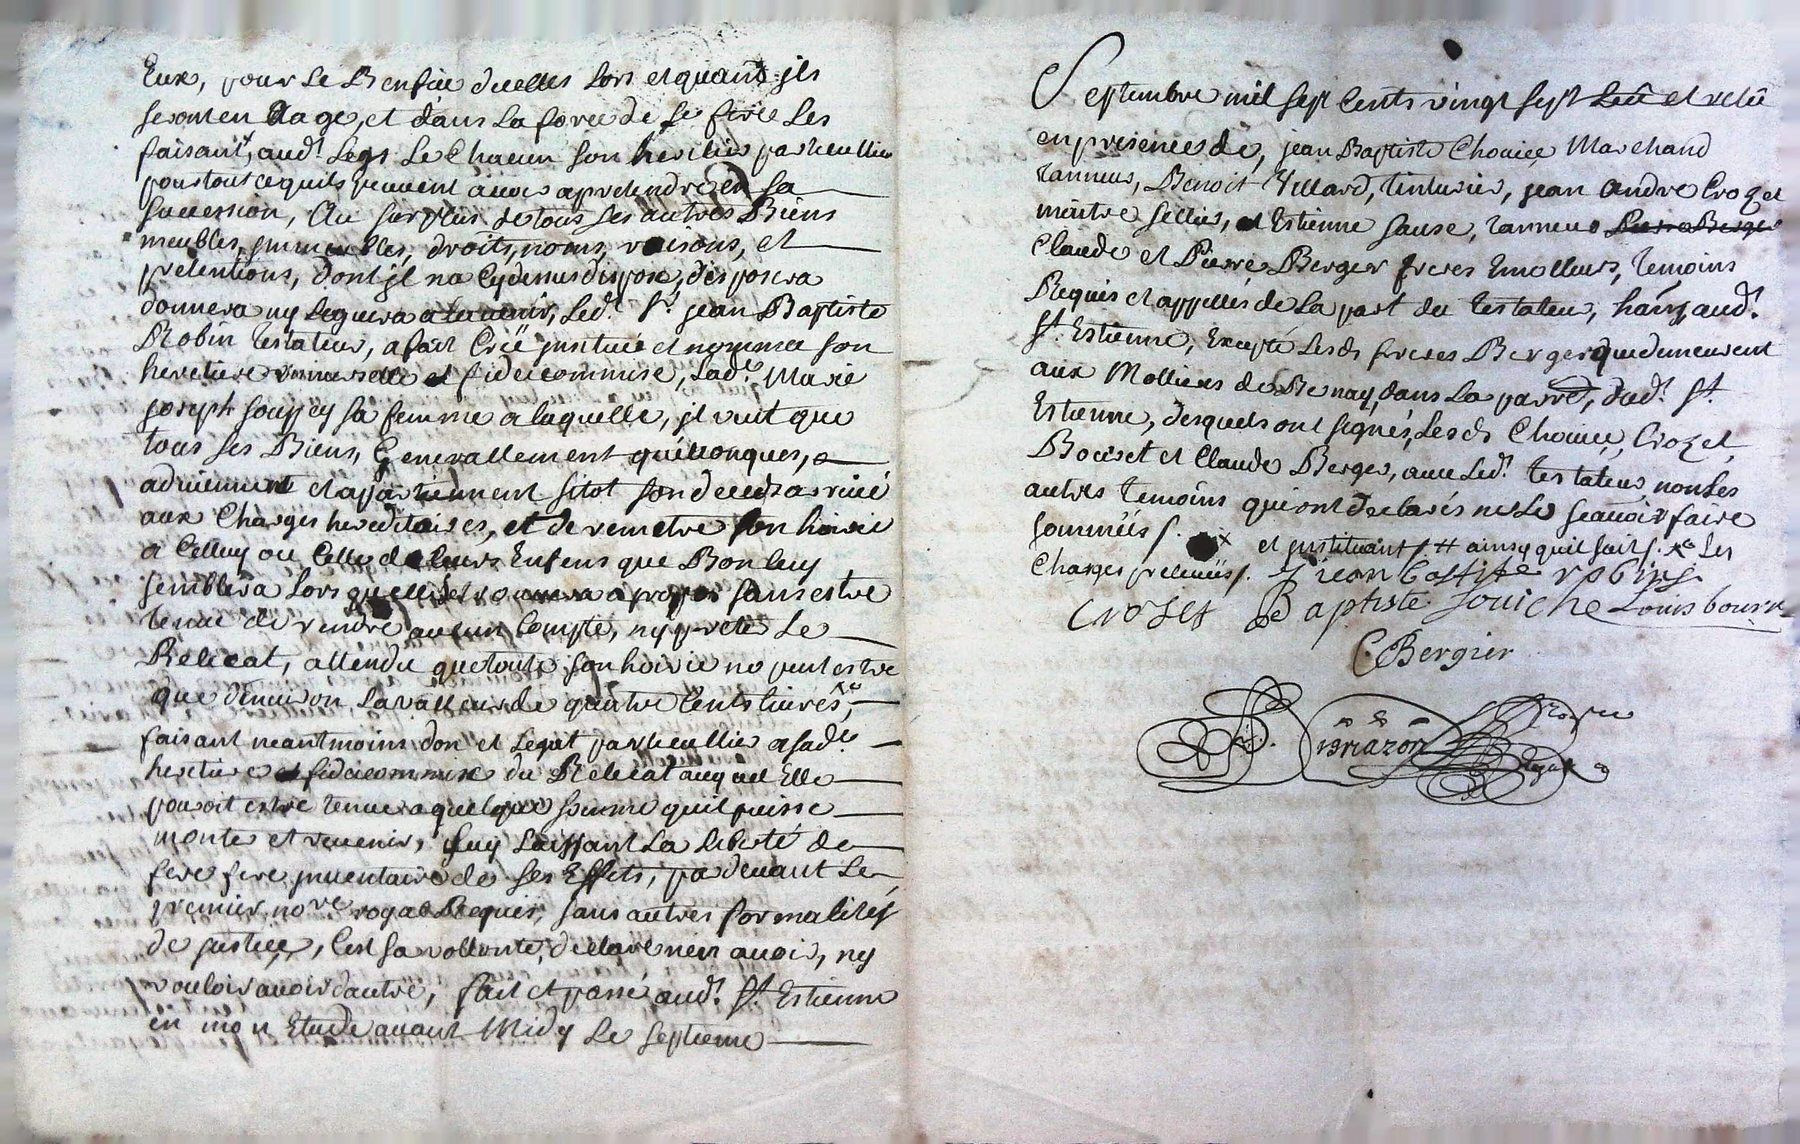 Eux, pour Le Benfice d'icelles Lors et quand jls
seront en Dage, et dans La force de se fere Les
faisant, aud.t Legs Le Chacun son heritier particullier
pour tout ce quils peuvent avoir a pretendre en sa
Succession, Au surplus de tous Ses autres Biens
meubles, jmmeubles, droits, noms, raisons, et
pretentions, Dont jl na Cydessus dispose, disposera
donnera ny Leguera a Lavenir, Led.t S.r jean Baptiste
Robin testateur, a fait Créé jnstitué et nommee son
heretiere universelle et fideicommise, Lad.e Marie
joseph Souffey sa femme a laquelle, jl veut que
tous ses Biens, Generallement quelconques,
adviennent et appartiennent sitot son deceds arrivé
aux Charges hereditaires, et de remetre son hoirie
a Celluy ou Celle de Leurs Enfens que Bon Luy
semblera Lors quelle trouvera a propos sans estre
tenue de rendre aucun Compte, ny prete Le
Relicat, attendu que toute son hoirie ne peut estre
que denviron La valleur de quatre Cents Livres,
faisant neantmoins don et Legat particullier a sad.e
heretiere et fideicommise du Relicat auquel Elle
pouroit estre tenue a quelque somme quil puisse
monter et revenir, Luy Laissant La liberté de
fere fere jnventaire de ses Effets, par devant Le
premier no.re royal Requis, sans autres formalités
de justice, C'est sa vollonté, declare nen avoir, ny
vouloir avoir dautre, fait et passé aud.t S.t Estienne
en mon Etude avant Midy Le septieme
Septembre mil sept Cents vingt sept Leu et releu
en presence de, jean Baptiste Chouice Marchand
tanneur, Benoit Villard, tinturier, jean andre Crozet
maitre sellier, et Estienne sause, tanneur Pierre Berger
Claude et Pierre Berger freres Emolleurs, temoins
Requis et appellés de La part du testateur, hants aud.t
S.t Estienne, Excepté Lesds freres Berger que demeurent
aux Molliers de Benay, dans La parr.e, dud.t S.t
Estienne, desquels ont signés, Lesds Chouice, Crozet,
Bourset et Claude Berger, avec Led.t testateur, non Les
autres temoins qui ont declarés ne Le sçauoir faire
sommés /. et jnstituant /. # ainsy quil sait /. Les
Charges prelevées /. jean batiste robins
Crozet Baptiste Souiche Louis bourr
C Bergier